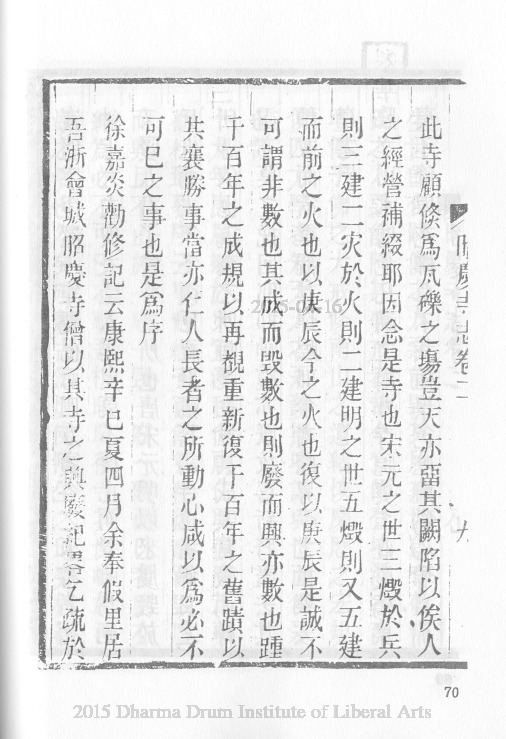 昭慶寺志卷二
九
此寺顧倐爲瓦礫之場豈天亦畱其闕陷以俟人
之經營補綴耶因念是寺也宋元之世三燬於兵
則三建二灾於火則二建明之世五燬則又五建
而前之火也以庚辰今之火也復以庚辰是誠不
可謂非數也其成而毀數也則廢而興亦數也踵
千百年之成規以再覩重新復千百年之舊蹟以
其襄勝事當亦仁人長者之所動心咸以爲必不
可已之事也是爲序
徐嘉炎勸修記云康熙辛巳夏四月余奉假里居
吾浙會城昭慶寺僧以其寺之興廢記畧乞疏於
70
2015 Dharma Drum Institute of Liberal Arts